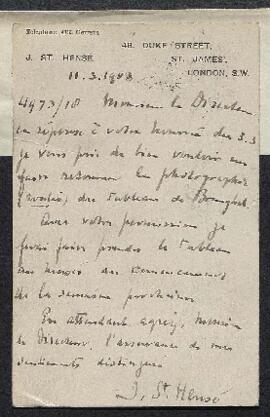 J. ST. HENSÉ.
48, DUKE STREET,
ST. JAMES',
LONDON, S.W.
4973/18 Monsieur le Directeur
en réponse à votre du 3.3
je vous prie de bien vouloir me
faire retourner la photographie
du tableau de
Avec votre permission je
ferai faire prendre le tableau
au commencement
de la semaine prochaine
En attendant agréez, Monsieur
le Directeur, l'assurance de mes
sentiments distingués
J. St. Hensé